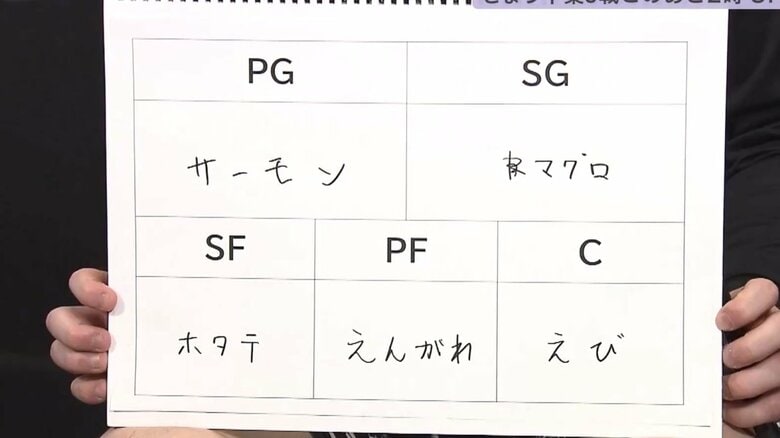 PG SG
サーモン マグロ
SF PF C
ホタテ えんがわ えび